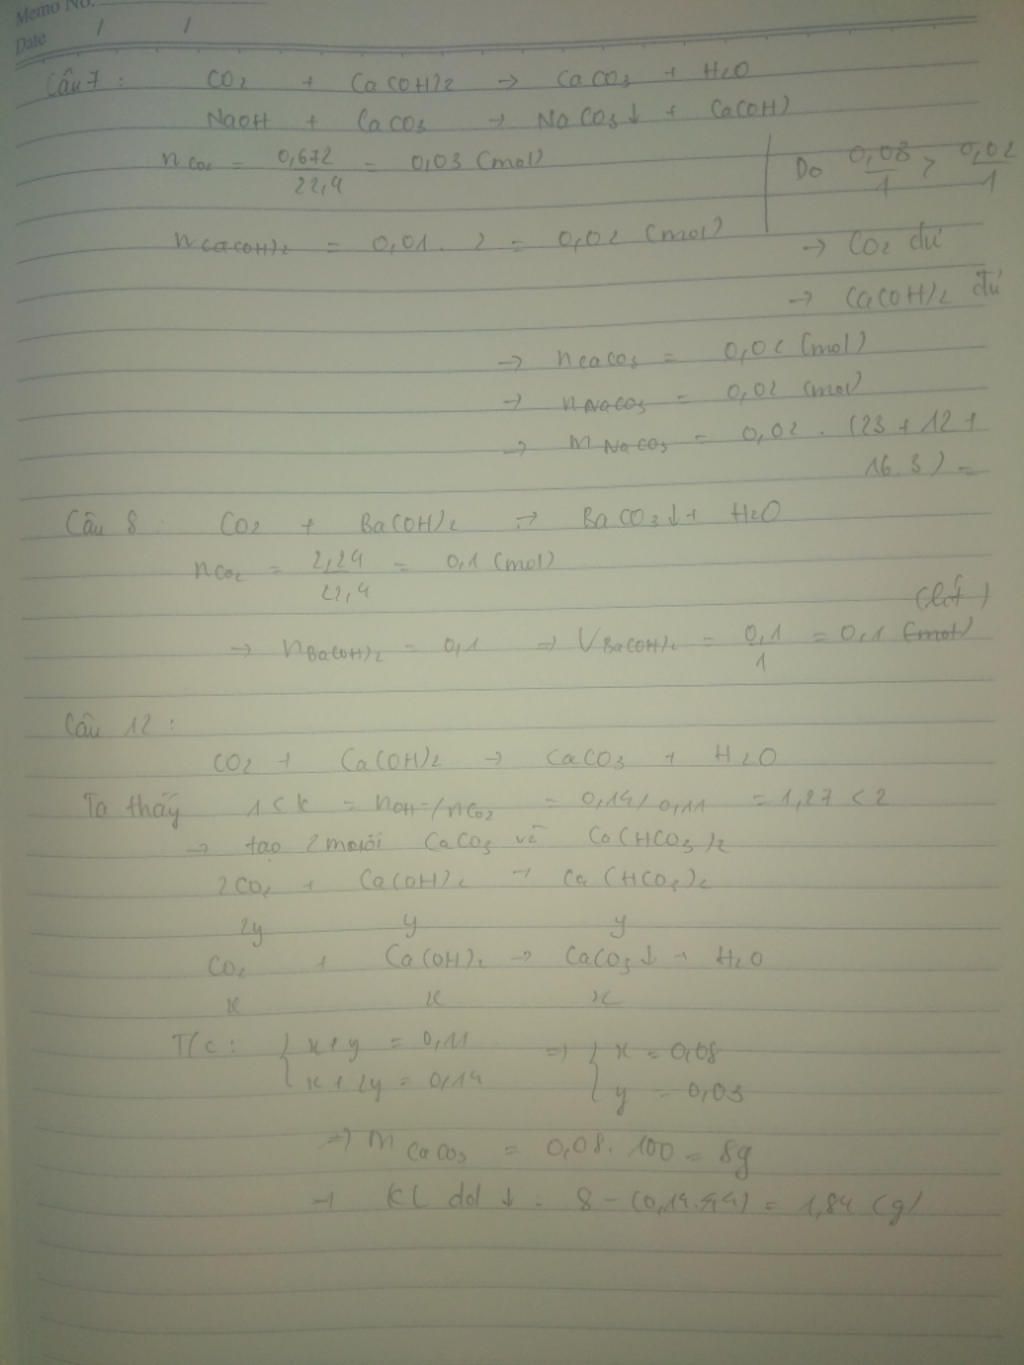 Memo No.
Date / /
Câu 7 : CO2 + Ca(OH)2 → CaCO3 + H2O
NaOH + CaCO3 → NaCO3↓ + Ca(OH)
nCO2 = 0,672/22,4 = 0,03 (mol)
Do 0,03/1 > 0,02/1
nCa(OH)2 = 0,01 . 2 = 0,02 (mol)
→ CO2 dư
→ Ca(OH)2 đủ
→ nCaCO3 = 0,02 (mol)
→ nNaCO3 = 0,02 (mol)
→ mNaCO3 = 0,02 . (23 + 12 +
16.3) =
Câu 8 : CO2 + Ba(OH)2 → BaCO3↓ + H2O
nCO2 = 2,24/22,4 = 0,1 (mol)
(lít)
→ nBa(OH)2 = 0,1 → VBa(OH)2 = 0,1/1 = 0,1 (mol)
Câu 12 :
CO2 + Ca(OH)2 → CaCO3 + H2O
Ta thấy 1 < k = nOH-/nCO2 = 0,14/0,11 = 1,27 < 2
→ tạo 2 muối CaCO3 và Ca(HCO3)2
2CO2 + Ca(OH)2 → Ca(HCO3)2
2y y y
CO2 + Ca(OH)2 → CaCO3↓ + H2O
x x x
T/c : { x+y = 0,11 ⇒ { x = 0,08
x + 2y = 0,14 y = 0,03
⇒ mCaCO3 = 0,08.100 = 8g
→ KL dd ↓ = 8 - (0,14.44) = 1,84 (g)